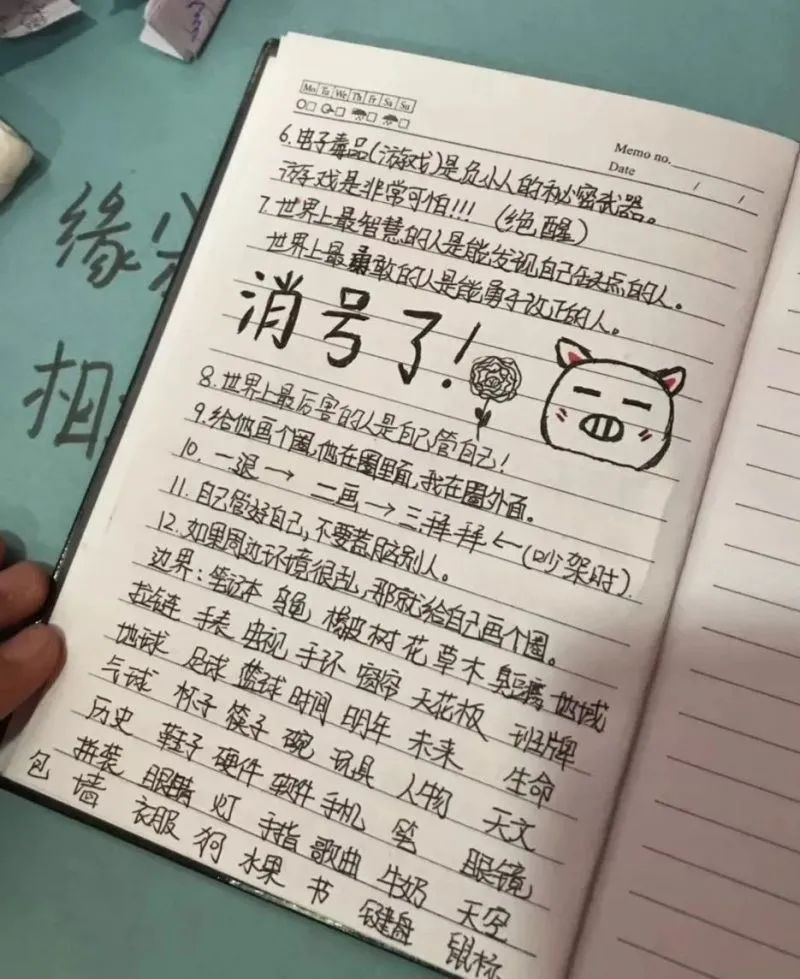 缘
相
Mo Tu We Th Fr Sa Su
Memo no.
Date / /
6.电子毒品(游戏)是负小人的秘密武器。
游戏是非常可怕!!! (绝醒)
7.世界上最智慧的人是能发现自己缺点的人。
世界上最勇敢的人是能勇于改正的人。
消号了!
8.世界上最厉害的人是自己管自己!
9.给他画个圈,他在圈里面,我在圈外面。
10. 一退→ 二画→三拜拜←(吵架时)
11.自己管好自己,不要惹月这别人。
12.如果周边环境很乱,那就给自己画个圈。
边界:笔记本 乌龟 橡皮 树 花 草 木 臭氧层 地域
拉链 手表 电视 手环 窗帘 天花板 班牌
地球 足球 篮球 时间 明年 未来 生命
气球 杯子 筷子 碗 玩具 人物 天文
历史 鞋子 硬件 软件 手机 笔 眼镜
拼装 眼睛 灯 手指 歌曲 牛奶 天空
包 墙 衣服 狗 水果 书 键盘 鼠标